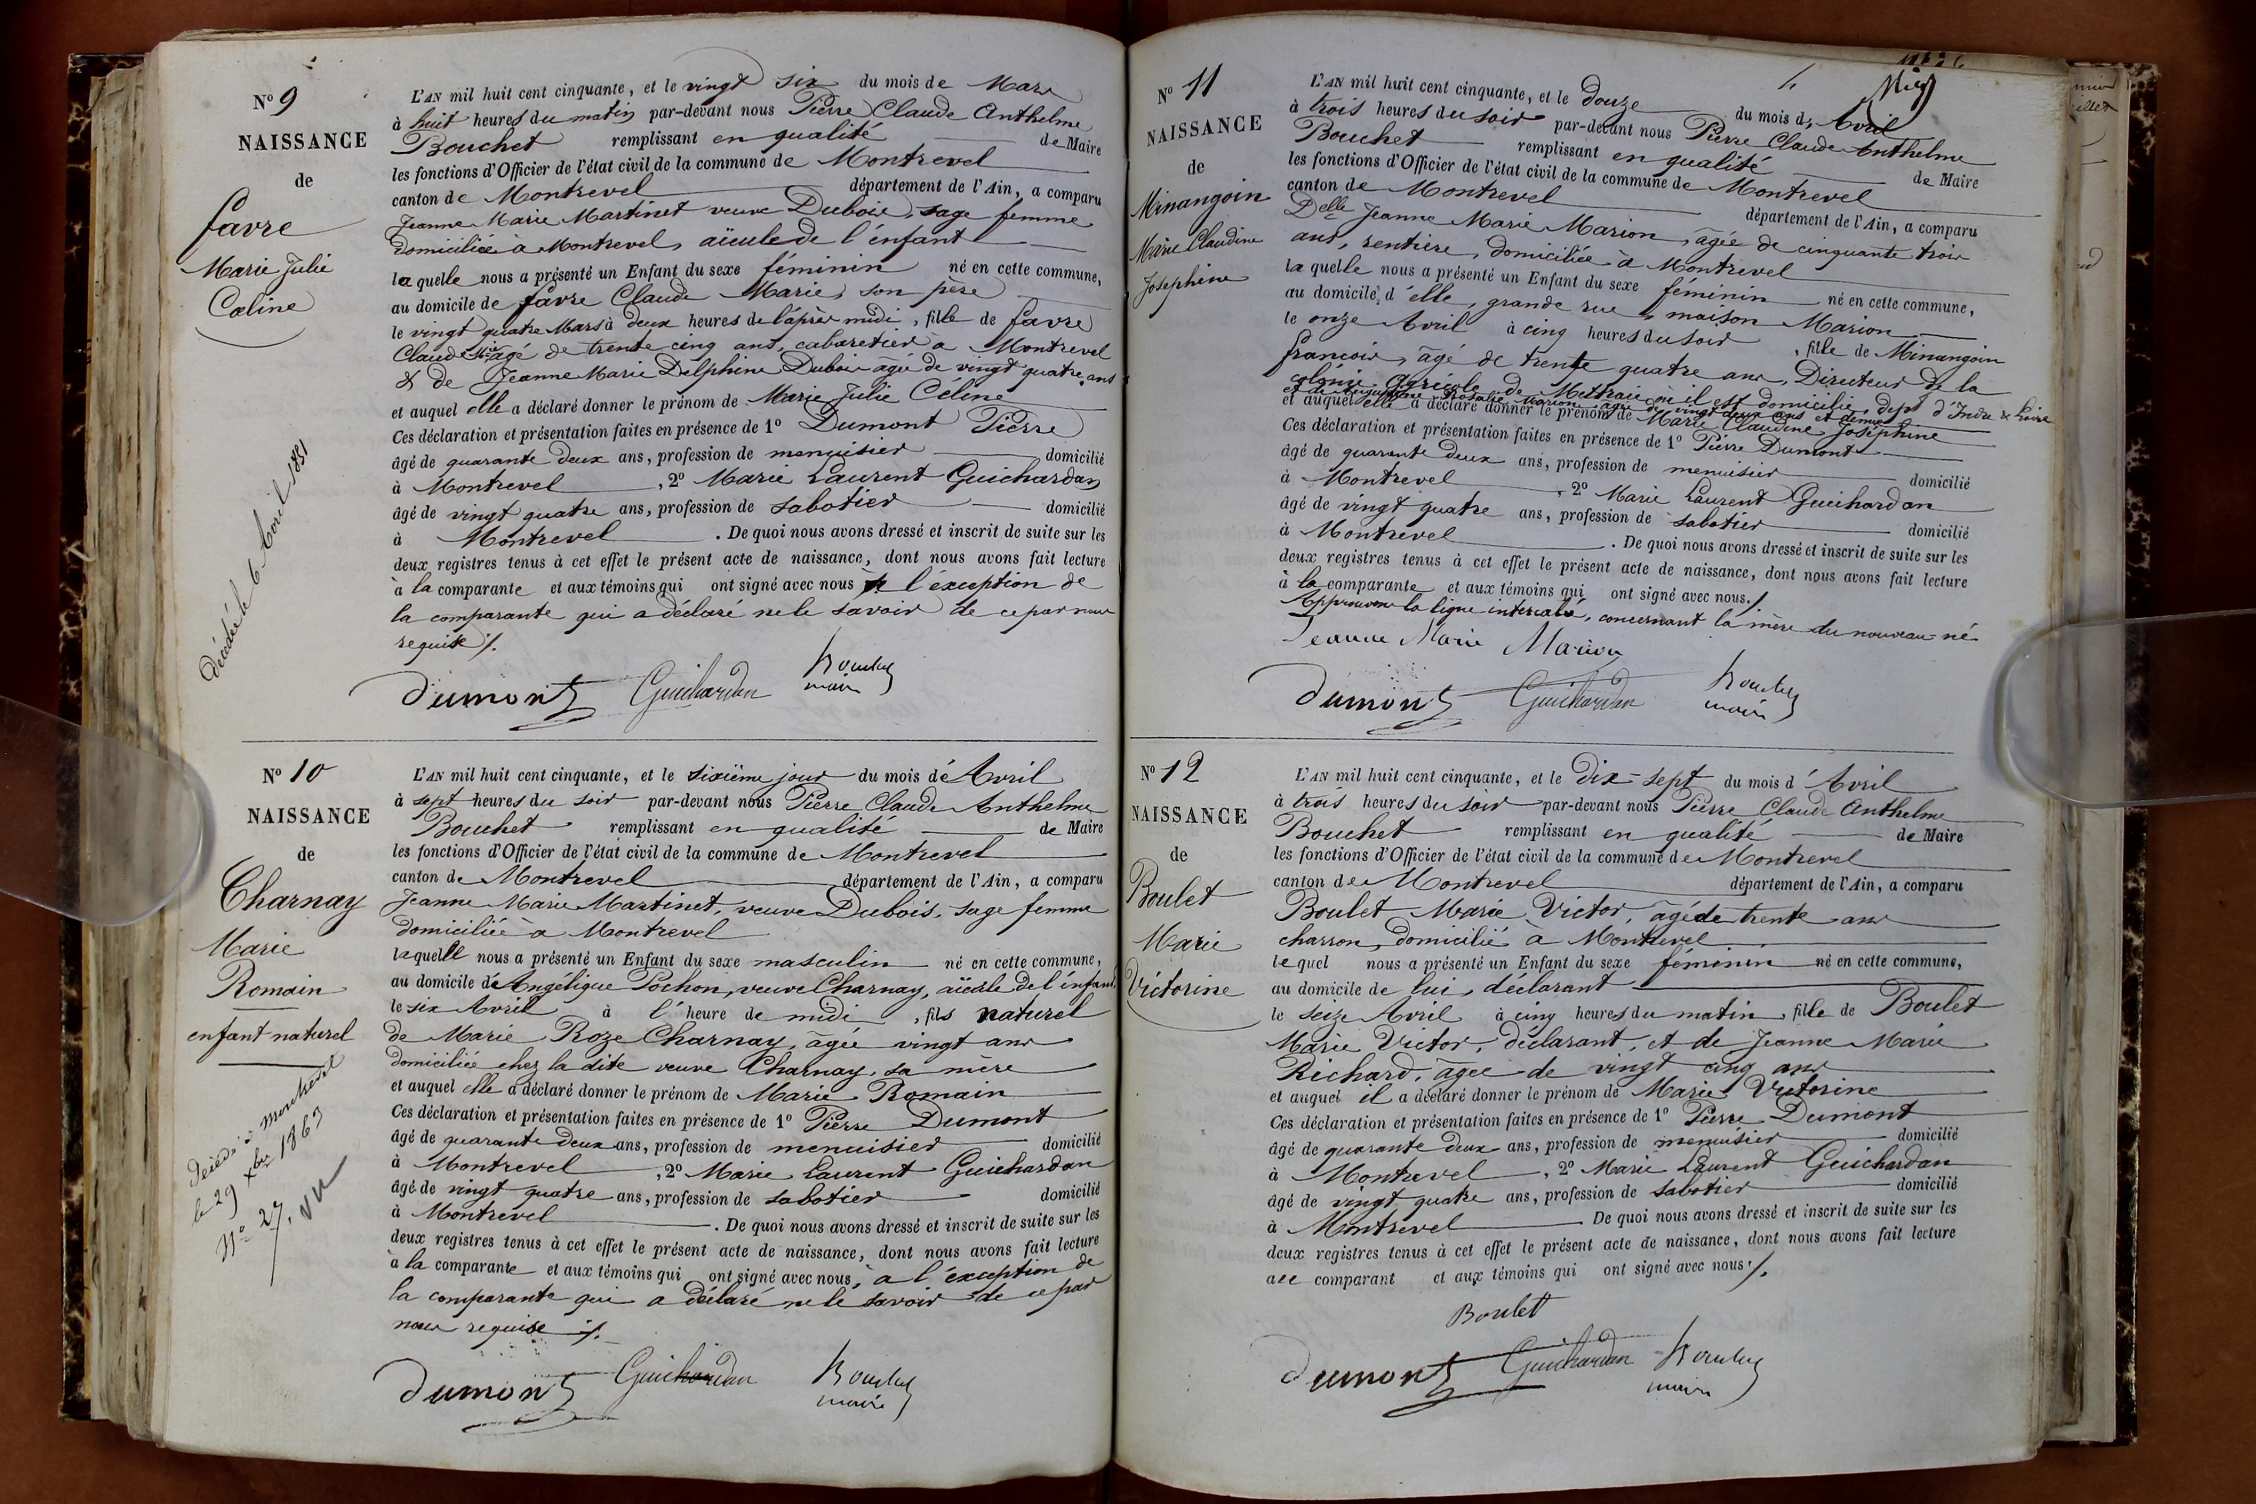 N.º 9
NAISSANCE
de
favre
Marie Julie
Céline
Décédée le 6 Avril 1851
L'AN mil huit cent cinquante, et le vingt six du mois de Mars
à huit heures du matin par-devant nous Pierre Claude Anthelme
Bouchet remplissant en qualité de Maire
les fonctions d'Officier de l'état civil de la commune de Montrevel
canton de Montrevel département de l'Ain, a comparu
Jeanne Marie Martinet veuve Dubois, sage femme
domiciliée a Montrevel, aïeule de l'enfant
laquelle nous a présenté un Enfant du sexe féminin né en cette commune,
au domicile de favre Claude Marie, son père
le vingt quatre Mars à deux heures de l'après midi, fille de favre
Claude Mie âgé de trente cinq ans, cabaretier a Montrevel
& de Jeanne Marie Delphine Dubois âgée de vingt quatre ans
et auquel elle a déclaré donner le prénom de Marie Julie Céline
Ces déclaration et présentation faites en présence de 1º Dumont Pierre
âgé de quarante deux ans, profession de menuisier domicilié
à Montrevel, 2º Marie Laurent Guichardan
âgé de vingt quatre ans, profession de sabotier domicilié
à Montrevel. De quoi nous avons dressé et inscrit de suite sur les
deux registres tenus à cet effet le présent acte de naissance, dont nous avons fait lecture
à la comparante et aux témoins qui ont signé avec nous à l'exception de
la comparante qui a déclaré ne le savoir de ce par nous
requise ./.
Dumont Guichardan Bouchet
maire
N.º 10
NAISSANCE
de
Charnay
Marie
Romain
enfant naturel
décédé à montrevel
le 29 Xbre 1863
Nº 27. vu
L'AN mil huit cent cinquante, et le sixième jour du mois d'Avril
à sept heures du soir par-devant nous Pierre Claude Anthelme
Bouchet remplissant en qualité de Maire
les fonctions d'Officier de l'état civil de la commune de Montrevel
canton de Montrevel département de l'Ain, a comparu
Jeanne Marie Martinet, veuve Dubois, sage femme
domiciliée à Montrevel
laquelle nous a présenté un Enfant du sexe masculin né en cette commune,
au domicile de Angélique Pochon, veuve Charnay, aïeule de l'enfant,
le six Avril à l'heure de midi, fils naturel
de Marie Roze Charnay, âgée vingt ans
domiciliée chez la dite veuve Charnay, sa mère
et auquel elle a déclaré donner le prénom de Marie Romain
Ces déclaration et présentation faites en présence de 1º Pierre Dumont
âgé de quarante deux ans, profession de menuisier domicilié
à Montrevel, 2º Marie Laurent Guichardan
âgé de vingt quatre ans, profession de sabotier domicilié
à Montrevel. De quoi nous avons dressé et inscrit de suite sur les
deux registres tenus à cet effet le présent acte de naissance, dont nous avons fait lecture
à la comparante et aux témoins qui ont signé avec nous, à l'exception de
la comparante qui a déclaré ne le savoir de ce par
nous requise ./.
Dumont Guichardan Bouchet
maire
N.º 11
NAISSANCE
de
Minangoin
Marie Claudine
Joséphine
L'AN mil huit cent cinquante, et le douze du mois d'Avril
à trois heures du soir par-devant nous Pierre Claude Anthelme
Bouchet remplissant en qualité de Maire
les fonctions d'Officier de l'état civil de la commune de Montrevel
canton de Montrevel département de l'Ain, a comparu
Delle Jeanne Marie Marion, âgée de cinquante trois
ans, rentière, domiciliée à Montrevel
laquelle nous a présenté un Enfant du sexe féminin né en cette commune,
au domicile d'elle, grande rue, maison Marion
le onze Avril à cinq heures du soir, fille de Minangoin
françois, âgé de trente quatre ans, Directeur de la
colonie agricole de Mettraie où il est domicilié, dept d'Indre & Loire
et de Rosalie Marion âgée de vingt deux ans et demie
et auquel elle a déclaré donner le prénom de Marie Claudine Joséphine
Ces déclaration et présentation faites en présence de 1º Pierre Dumont
âgé de quarante deux ans, profession de menuisier domicilié
à Montrevel, 2º Marie Laurent Guichardan
âgé de vingt quatre ans, profession de sabotier domicilié
à Montrevel. De quoi nous avons dressé et inscrit de suite sur les
deux registres tenus à cet effet le présent acte de naissance, dont nous avons fait lecture
à la comparante et aux témoins qui ont signé avec nous./.
Approuvons la ligne intercalée, concernant la mère du nouveau-né
Jeanne Marie Marion
Dumont Guichardan Bouchet
maire
N.º 12
NAISSANCE
de
Boulet
Marie
Victorine
L'AN mil huit cent cinquante, et le dix-sept du mois d'Avril
à trois heures du soir par-devant nous Pierre Claude Anthelme
Bouchet remplissant en qualité de Maire
les fonctions d'Officier de l'état civil de la commune de Montrevel
canton de Montrevel département de l'Ain, a comparu
Boulet Marie Victor, âgé de trente ans
charron, domicilié à Montrevel
lequel nous a présenté un Enfant du sexe féminin né en cette commune,
au domicile de lui, déclarant
le seize Avril à cinq heures du matin, fille de Boulet
Marie Victor, déclarant, et de Jeanne Marie
Richard, âgée de vingt cinq ans
et auquel il a déclaré donner le prénom de Marie Victorine
Ces déclaration et présentation faites en présence de 1º Pierre Dumont
âgé de quarante deux ans, profession de menuisier domicilié
à Montrevel, 2º Marie Laurent Guichardan
âgé de vingt quatre ans, profession de sabotier domicilié
à Montrevel. De quoi nous avons dressé et inscrit de suite sur les
deux registres tenus à cet effet le présent acte de naissance, dont nous avons fait lecture
au comparant et aux témoins qui ont signé avec nous./.
Boulet
Dumont Guichardan Bouchet
maire